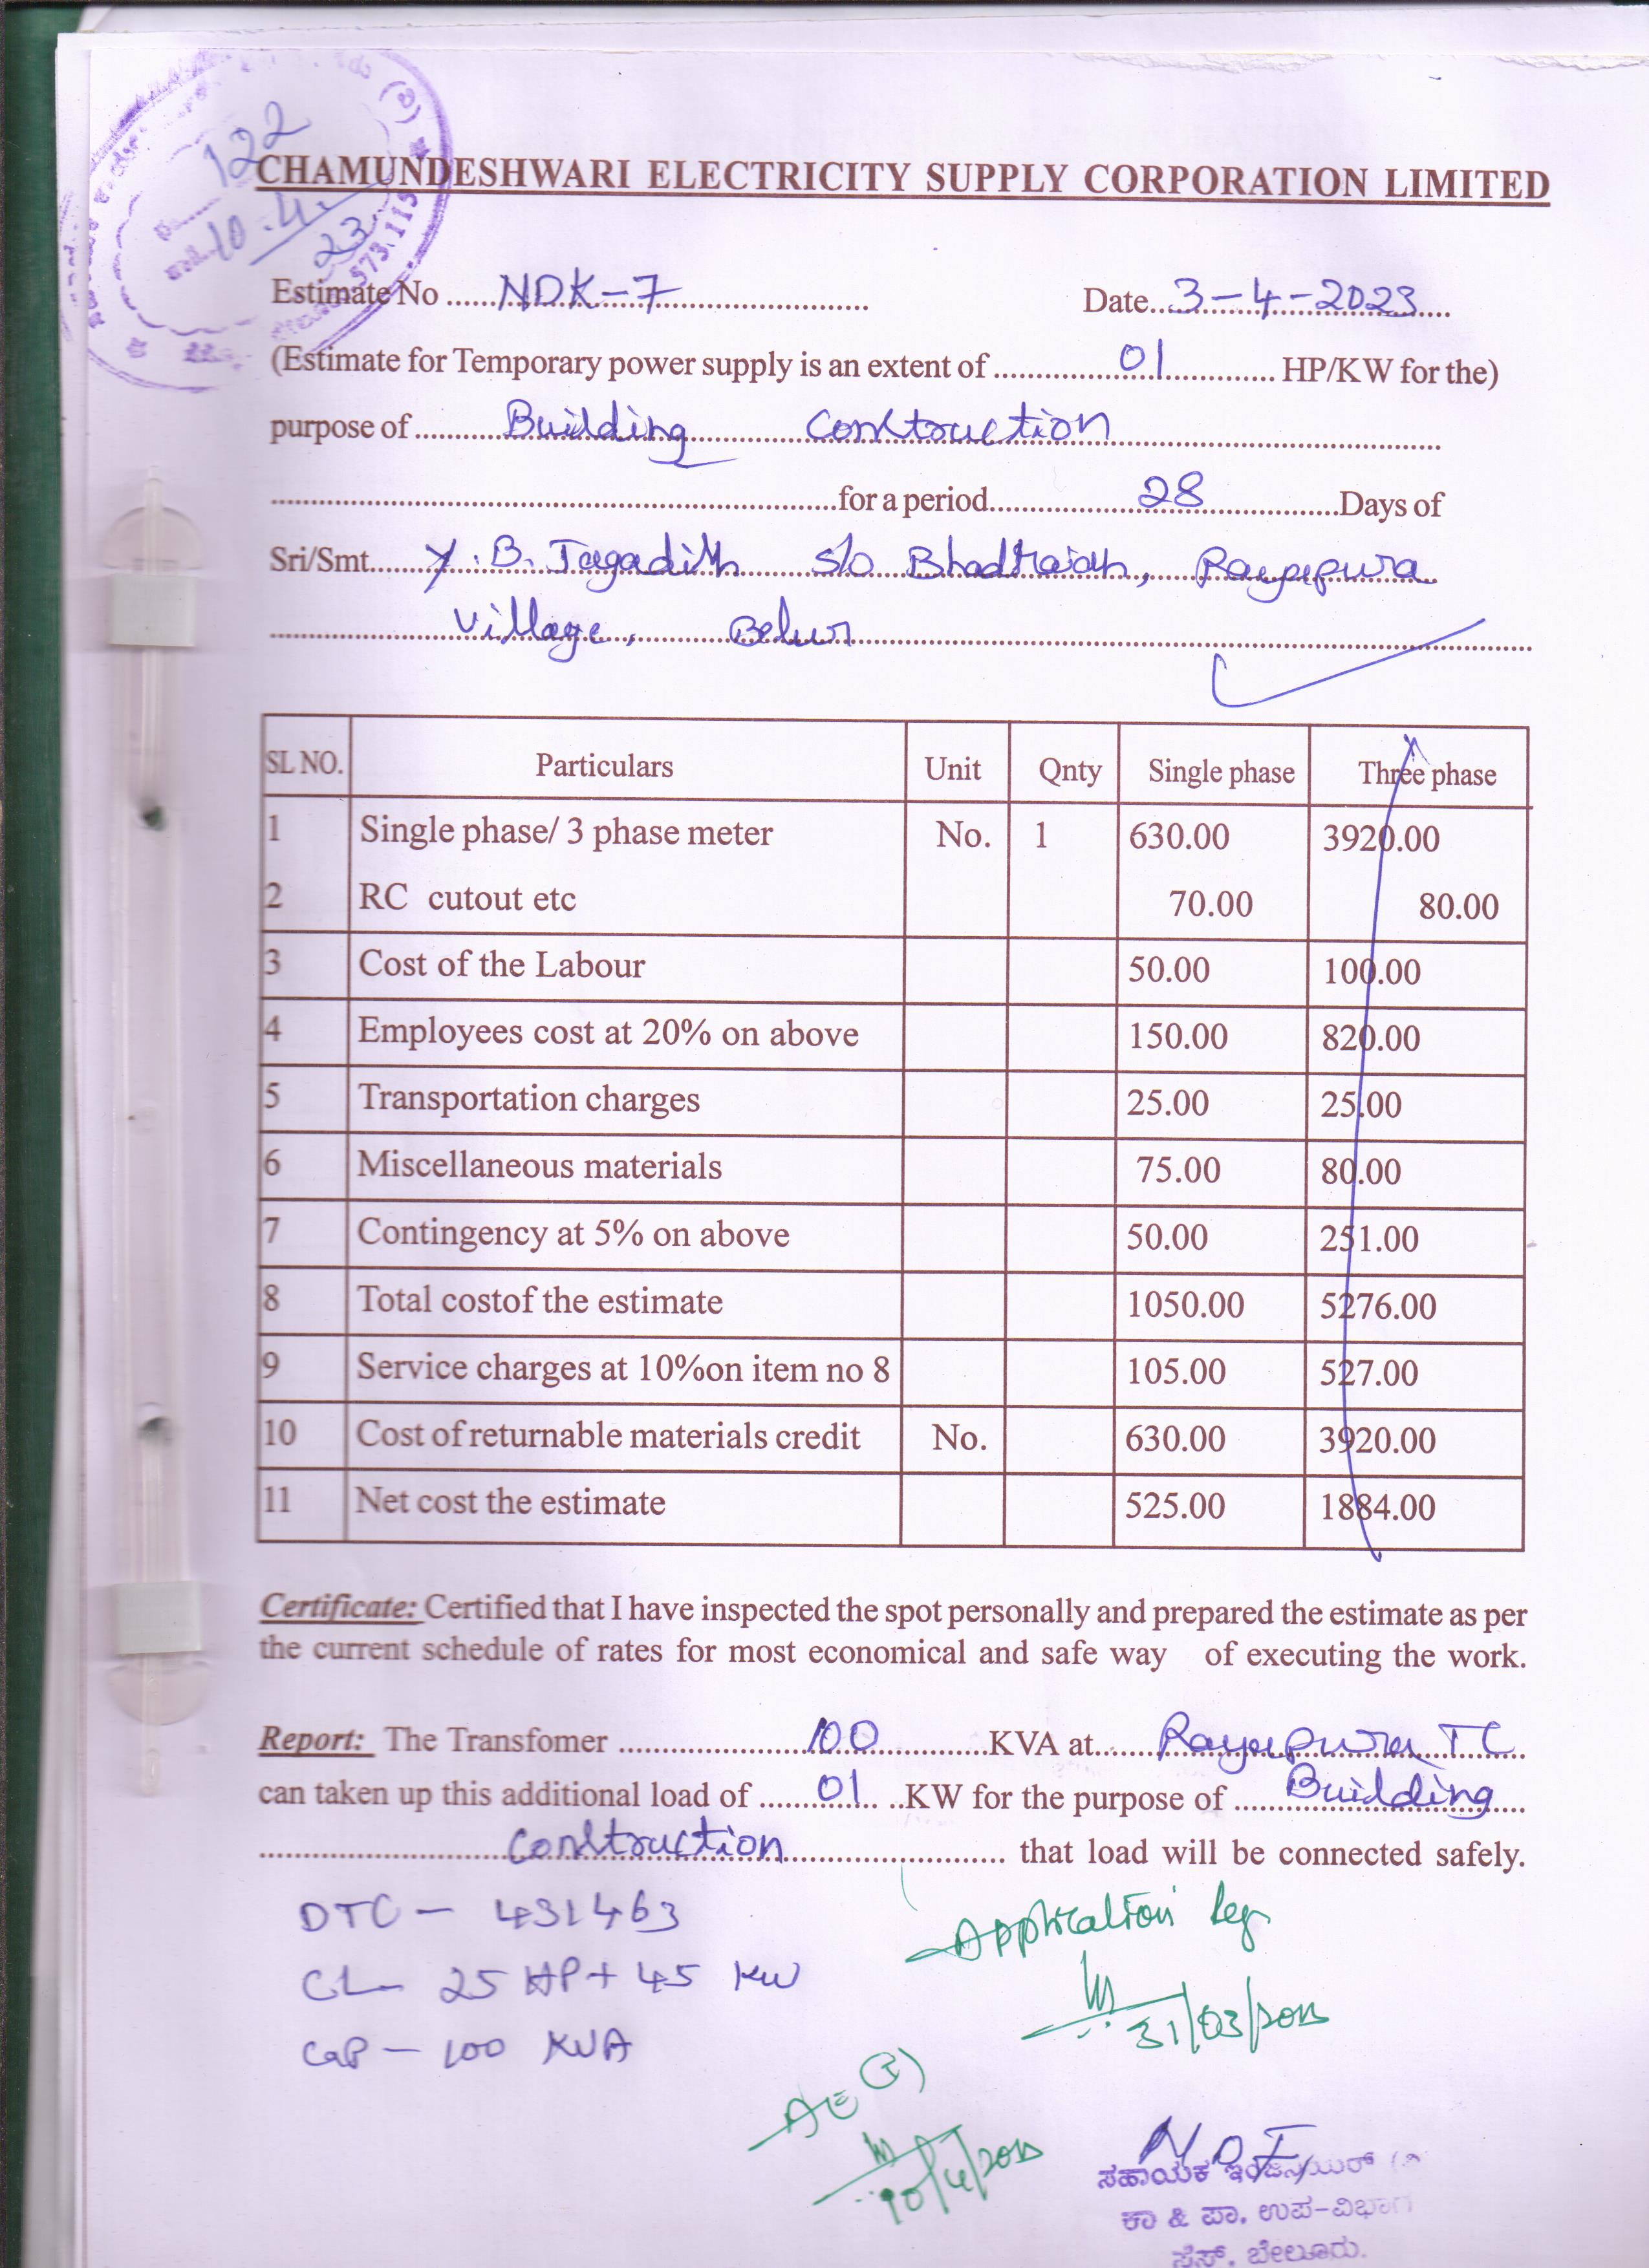 122
10.4.23
573.115
CHAMUNDESHWARI ELECTRICITY SUPPLY CORPORATION LIMITED
Estimate No ......NDK-7........................ Date...3-4-2023....
(Estimate for Temporary power supply is an extent of ..............01.............. HP/KW for the)
purpose of ..........Building Construction..............................
......................................................for a period..................28................Days of
Sri/Smt......Y.B. Jagadish S/o Bhadraiah, Rayapura
Village, Belur
SL NO. Particulars Unit Qnty Single phase Three phase
1 Single phase/ 3 phase meter No. 1 630.00 3920.00
2 RC cutout etc 70.00 80.00
3 Cost of the Labour 50.00 100.00
4 Employees cost at 20% on above 150.00 820.00
5 Transportation charges 25.00 25.00
6 Miscellaneous materials 75.00 80.00
7 Contingency at 5% on above 50.00 251.00
8 Total costof the estimate 1050.00 5276.00
9 Service charges at 10%on item no 8 105.00 527.00
10 Cost of returnable materials credit No. 630.00 3920.00
11 Net cost the estimate 525.00 1884.00
Certificate: Certified that I have inspected the spot personally and prepared the estimate as per
the current schedule of rates for most economical and safe way of executing the work.
Report: The Transfomer ......................100.............KVA at......Rayapura TC
can taken up this additional load of .......01.. ..KW for the purpose of ......Building......
..............................Construction............................ that load will be connected safely.
DTC - 431463
CL - 25 HP + 45 KW
Cap - 100 KVA
Application Reg
31/03/2023
AE
10/4/2023
ಸಹಾಯಕ ಇಂಜಿನಿಯರ್
ಕಾ & ಪಾ. ಉಪ-ವಿಭಾಗ
ಸೆಸ್. ಬೇಲೂರು.